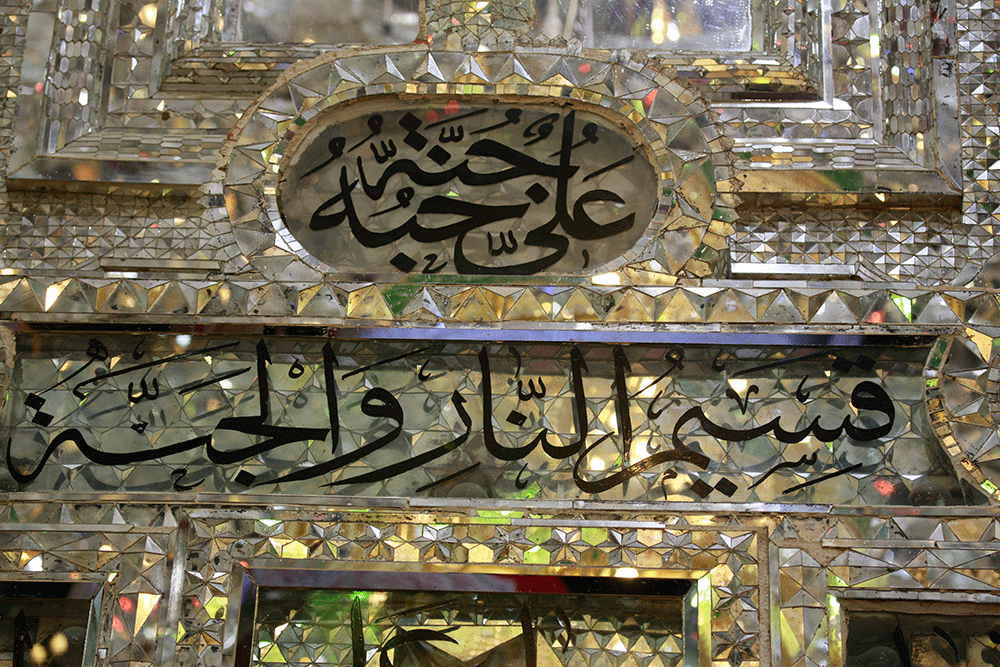 عَلِيٌّ حُبُّهُ جُنَّةٌ
قَسِيمُ النَّارِ وَالْجَنَّةِ